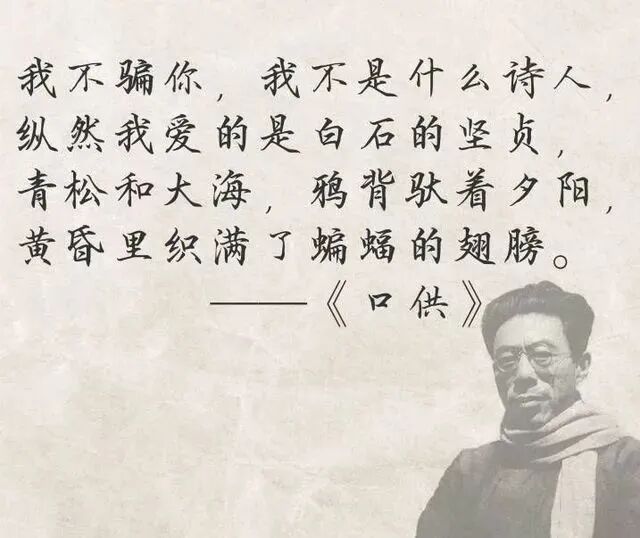 我不骗你，我不是什么诗人，
纵然我爱的是白石的坚贞，
青松和大海，鸦背驮着夕阳，
黄昏里织满了蝙蝠的翅膀。
——《口供》